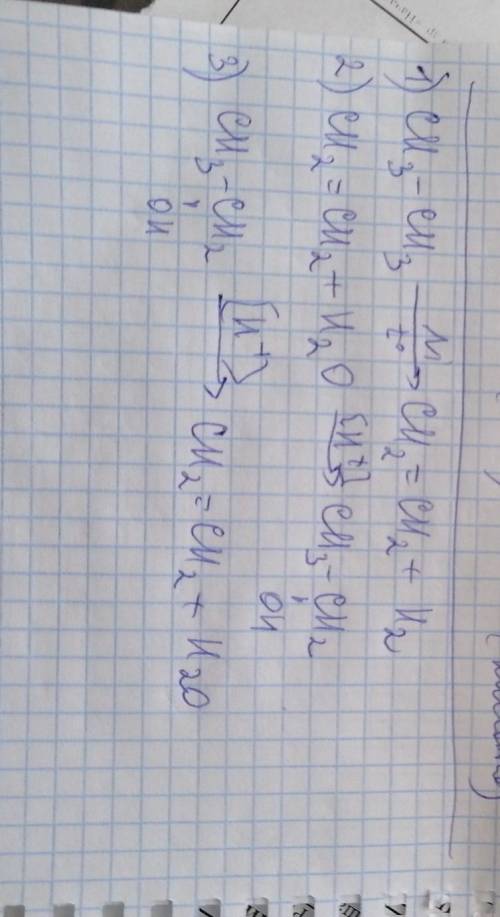 1) CH₃ – CH₃ —Ni, t°→ CH₂ = CH₂ + H₂
2) CH₂ = CH₂ + H₂O —[H⁺]→ CH₃ – CH₂
OH
3) CH₃ – CH₂ —[H⁺]→ CH₂ = CH₂ + H₂O
OH